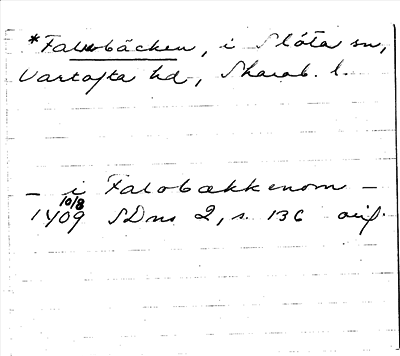 *Falubäcken, i Slöta sn,
Vartofta hd, Skarab. l.
– i Falobækkenom –
10/8
1409 SDns 2, s. 136 orig.